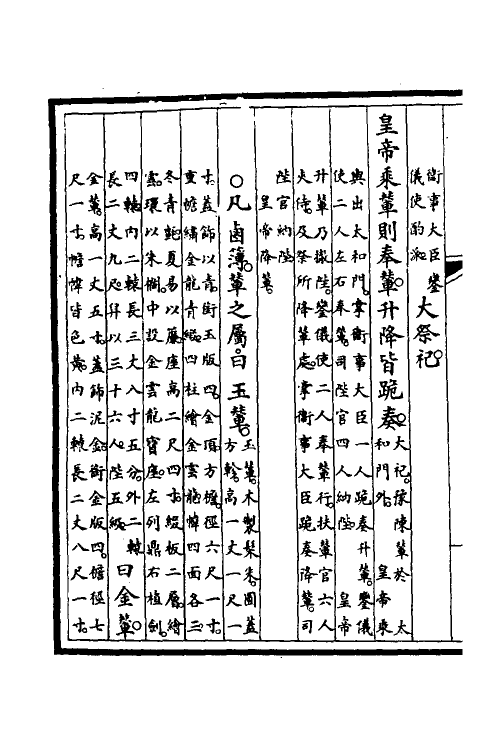 衛事大臣鑾
儀使酌派
大祭祀
皇帝乘輦則奉輦升降皆跪奏
大祀豫陳輦於 太
和門外 皇帝乘
輿出太和門掌衛事大臣一人跪奏升輦鑾儀
使二人左右奉輦司陛官四人納陛 皇帝
升輦乃撤陛鑾儀使二人奉輦行扶輦官六人
夾侍及祭所降輦處掌衛事大臣跪奏降輦司
陛官納陛
皇帝降輦
○凡鹵簿輦之屬曰玉輦
玉輦木製髹朱圓蓋
方軫高一丈一尺一
寸蓋飾以青銜玉版四金頂方檐徑六尺一寸
重幨繡金龍青緞四柱繪金雲龍幃四面各三
冬青氈夏易以簾座高二尺四寸綴板二層繪
雲環以朱闌中設金雲龍寶座左列鼎右植劍
四轅內二轅長三丈八寸五分外二轅
長二丈九尺舁以三十六人陛五級
曰金輦
金輦高一丈五寸蓋飾泥金銜金版四檐徑七
尺一寸幨幃皆色黃內二轅長二丈八尺一寸